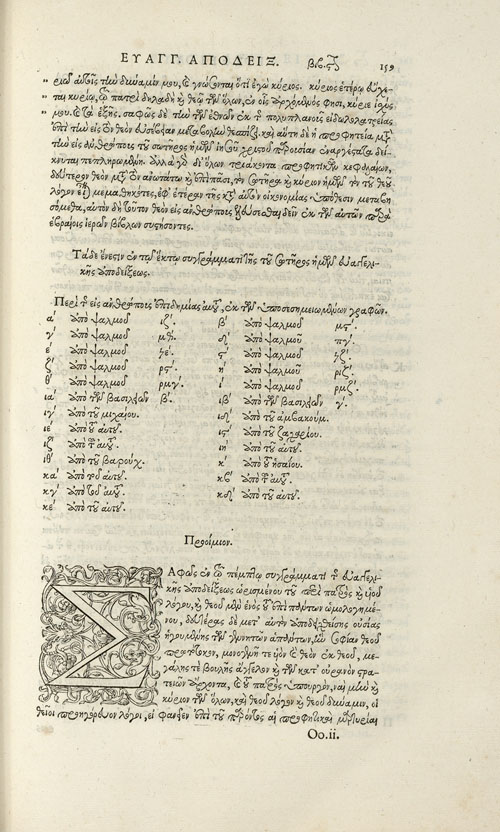 ΕΥΑΓΓ. ΑΠΟΔΕΙΞ. βιβ. ϛ 159
ριῳ αὐτοῖς τὴν δύναμίν μου, καὶ γνώσονται ὅτι ἐγὼ κύριος. κύριος ἑτέρῳ
κυρίῳ, τῷ πατρὶ δηλαδὴ καὶ θεῷ τῶν ὅλων, ἐν οἷς ἀρχόμενός φησι, κύριε ἰσχύς
μου. καὶ τὰ ἑξῆς. σαφῶς δὲ τὴν τῶν ἐθνῶν ἐκ τῆς πολυπλανοῦς εἰδωλολατρείας
ἐπὶ τὴν εἰς θεὸν εὐσέβειαν μεταβολὴν θεσπίζει. καὶ αὕτη δὲ ἡ προφητεία μετὰ
τὴν εἰς ἀνθρώπους τοῦ σωτῆρος ἡμῶν ἰησοῦ χριστοῦ παρουσίαν ἐναργέστατα δεί-
κνυται πεπληρωμένη. ἀλλὰ γὰρ δι' ὅλων τριάκοντα προφητικῶν κεφαλαίων,
δεύτερον θεὸν μετὰ τὸν ἀνωτάτω καὶ ἐπὶ πᾶσι, τὸν σωτῆρα καὶ κύριον ἡμῶν τὸν τοῦ θεοῦ
λόγον μεμαθηκότες, ἐφ' ἑτέραν τῆς κατ' αὐτὸν οἰκονομίας ὑπόθεσιν μεταβη
σόμεθα, αὐτὸν δὴ τοῦτον θεὸν εἰς ἀνθρώπους ἥξειν δεῖν ἐκ τῶν αὐτῶν παρὰ
ἑβραίοις ἱερῶν βίβλων συστήσοντες.
Τάδε ἔνεστιν ἐν τῷ ἕκτῳ συγγράμματι τῆς τοῦ σωτῆρος ἡμῶν εὐαγγελι-
κῆς ἀποδείξεως.
Περὶ τῆς εἰς ἀνθρώπους ἐπιδημίας αὐτοῦ, ἐκ τῶν ὑποσεσημειωμένων γραφῶν.
α' ἀπὸ ψαλμοῦ ιζ'. β' ἀπὸ ψαλμοῦ μϛ'.
γ' ἀπὸ ψαλμοῦ μθ'. δ' ἀπὸ ψαλμοῦ πγ'.
ε' ἀπὸ ψαλμοῦ ϟε'. ϛ' ἀπὸ ψαλμοῦ ϟζ'.
ζ' ἀπὸ ψαλμοῦ ρϛ'. η' ἀπὸ ψαλμοῦ ριζ'.
θ' ἀπὸ ψαλμοῦ ρμγ'. ι' ἀπὸ ψαλμοῦ ρμζ'.
ια' ἀπὸ τῶν βασιλειῶν β'. ιβ' ἀπὸ τῶν βασιλειῶν γ'.
ιγ' ἀπὸ τοῦ μιχαίου. ιδ' ἀπὸ τοῦ ἀμβακούμ.
ιε' ἀπὸ τοῦ αὐτοῦ. ιϛ' ἀπὸ τοῦ ζαχαρίου.
ιζ' ἀπὸ τοῦ αὐτοῦ. ιη' ἀπὸ τοῦ αὐτοῦ.
ιθ' ἀπὸ τοῦ βαρούχ. κ' ἀπὸ τοῦ ἡσαίου.
κα' ἀπὸ τοῦ αὐτοῦ. κβ' ἀπὸ τοῦ αὐτοῦ.
κγ' ἀπὸ τοῦ αὐτοῦ. κδ' ἀπὸ τοῦ αὐτοῦ.
κε' ἀπὸ τοῦ αὐτοῦ.
Προοίμιον.
ΣΑΦῶς ἐν τῷ πέμπτῳ συγγράμματι τῆς εὐαγγελι-
κῆς ἀποδείξεως ὡρισμένου τοῦ περὶ πατρὸς καὶ υἱοῦ
λόγου, καὶ θεοῦ μὲν ἑνὸς τοῦ ἐπὶ πάντων ὡμολογημέ-
νου, δευτέρας δὲ μετ' αὐτὸν ἀποδειχθείσης οὐσίας
ἡγουμένης τῶν γενητῶν ἁπάντων, ἣν σοφίαν θεοῦ
πρωτότοκον, μονογενῆ τε υἱὸν καὶ θεὸν ἐκ θεοῦ, με-
γάλης τε βουλῆς ἄγγελον καὶ τῶν κατ' οὐρανὸν στρα-
τειῶν ἄρχοντα, καὶ τοῦ πατρὸς ὑπουργὸν, ναὶ μὴν καὶ
κύριον τῶν ὅλων, καὶ θεοῦ λόγον καὶ θεοῦ δύναμιν, οἱ
θεῖοι προηγόρευον λόγοι, εἰ φανεῖεν ἐπὶ τοῦ παρόντος αἱ προφητικαὶ μαρτυρίαι
Oo.ii.